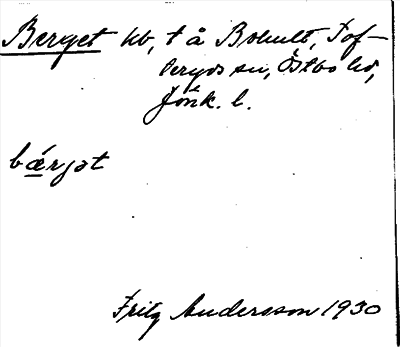 Berget hb, t å Bohult, Tof-
teryds sn, Östbo hd,
Jönk. l.
bǽrjət
Fritz Andersson 1930